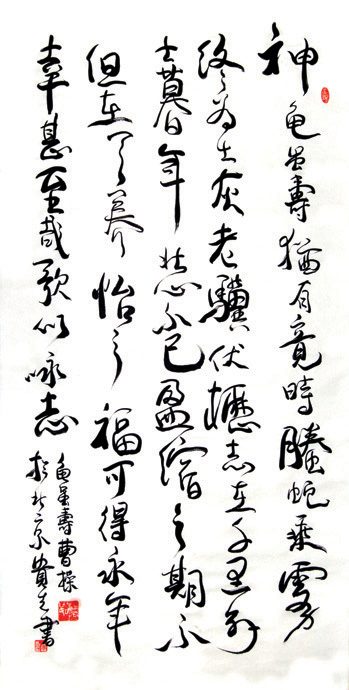 神龟虽壽猶有竟時螣蛇乘霧
終为土灰老驥伏櫪志在千里烈
士暮年壯心不已盈縮之期不
但在天养怡之福可得永年
幸甚至哉歌以咏志
龟虽壽曹操
於北京貴书